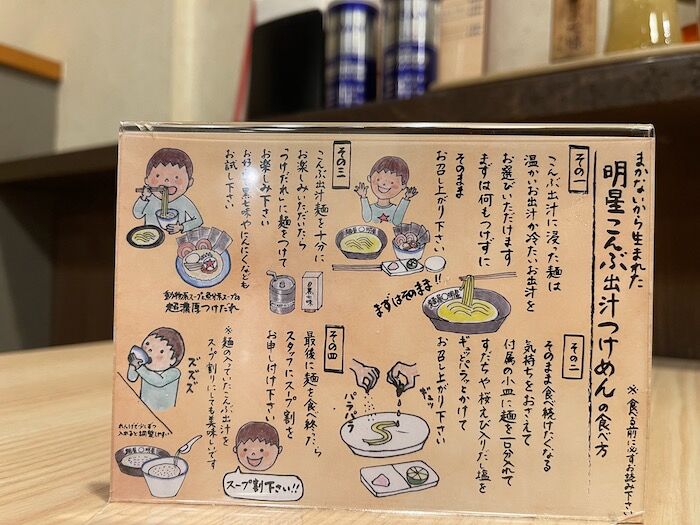 まかないから生まれた
明星こんぶ出汁つけめんの食べ方
※食す前に必ずお読み下さい
その一
こんぶ出汁に浸った麺は
温かいお出汁か冷たいお出汁を
お選びいただけます
まずは何もつけずに
そのまま
お召し上がり下さい
まずはそのまま!!
その二
そのまま食べ続けたくなる
気持ちをおさえて
付属の小皿に麺を一口分入れて
すだちや桜えび入りだし塩を
ギュッとパラッとかけて
お召し上がり下さい
ギュッ
パラパラ
その三
こんぶ出汁麺を十分に
お楽しみいただいたら
「つけだれ」に麺をつけて
お楽しみ下さい
お好みで黒七味やにんにくなども
お試し下さい
動物系スープと魚介系スープの
超濃厚つけだれ
その四
最後に麺を食べ終ったら
スタッフにスープ割を
お申し付け下さい
スープ割下さい!!
※麺の入っていたこんぶ出汁を
スープ割りにしても美味しいです
ズズズ
れんげで少しずつ
入れると